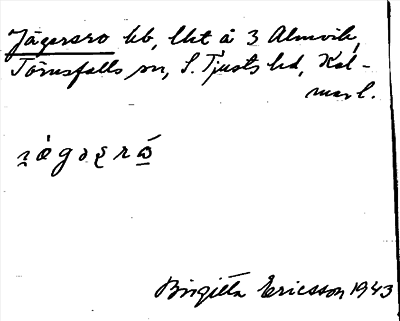 Jägersro hb, lht å 3 Almvik,
Törnsfalls sn, S. Tjusts hd, Kal-
mar l.
Birgitta Ericsson 1943